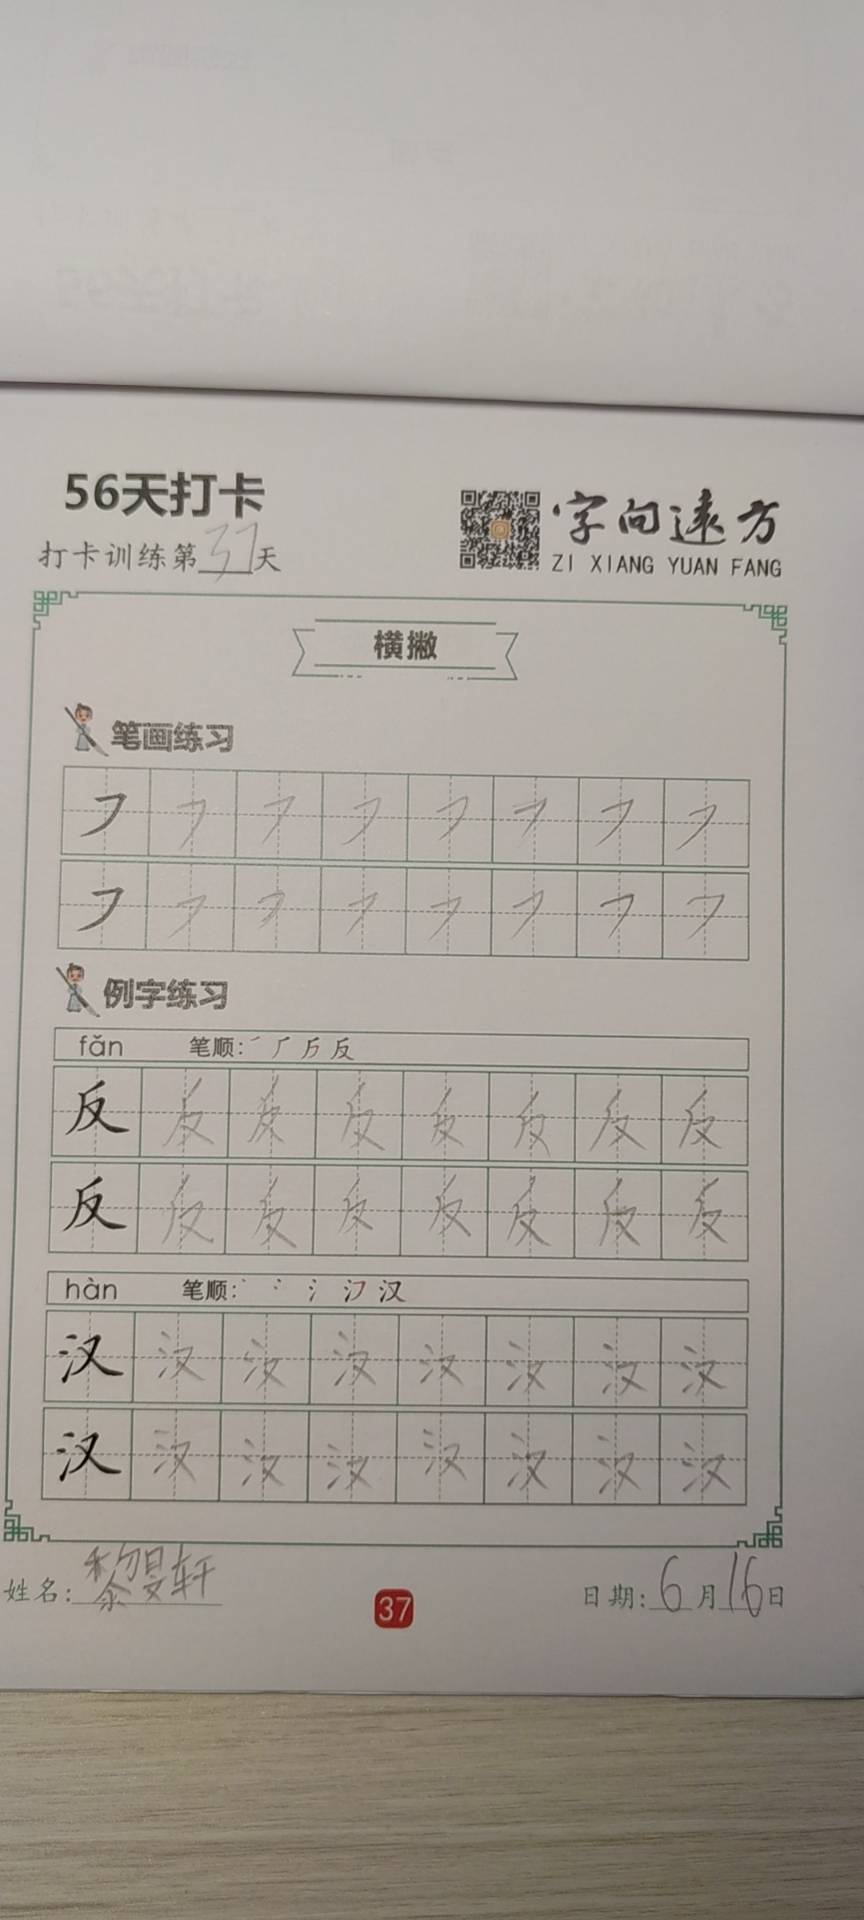 56天打卡
字向远方
ZI XIANG YUAN FANG
打卡训练第37天
横撇
笔画练习
㇇㇇㇇㇇㇇㇇㇇㇇
㇇㇇㇇㇇㇇㇇㇇㇇
例字练习
fǎn 笔顺: 反
反反反反反反反反
反反反反反反反反
hàn 笔顺: 汉
汉汉汉汉汉汉汉汉
汉汉汉汉汉汉汉汉
姓名:黎旻轩
37
日期:6月16日